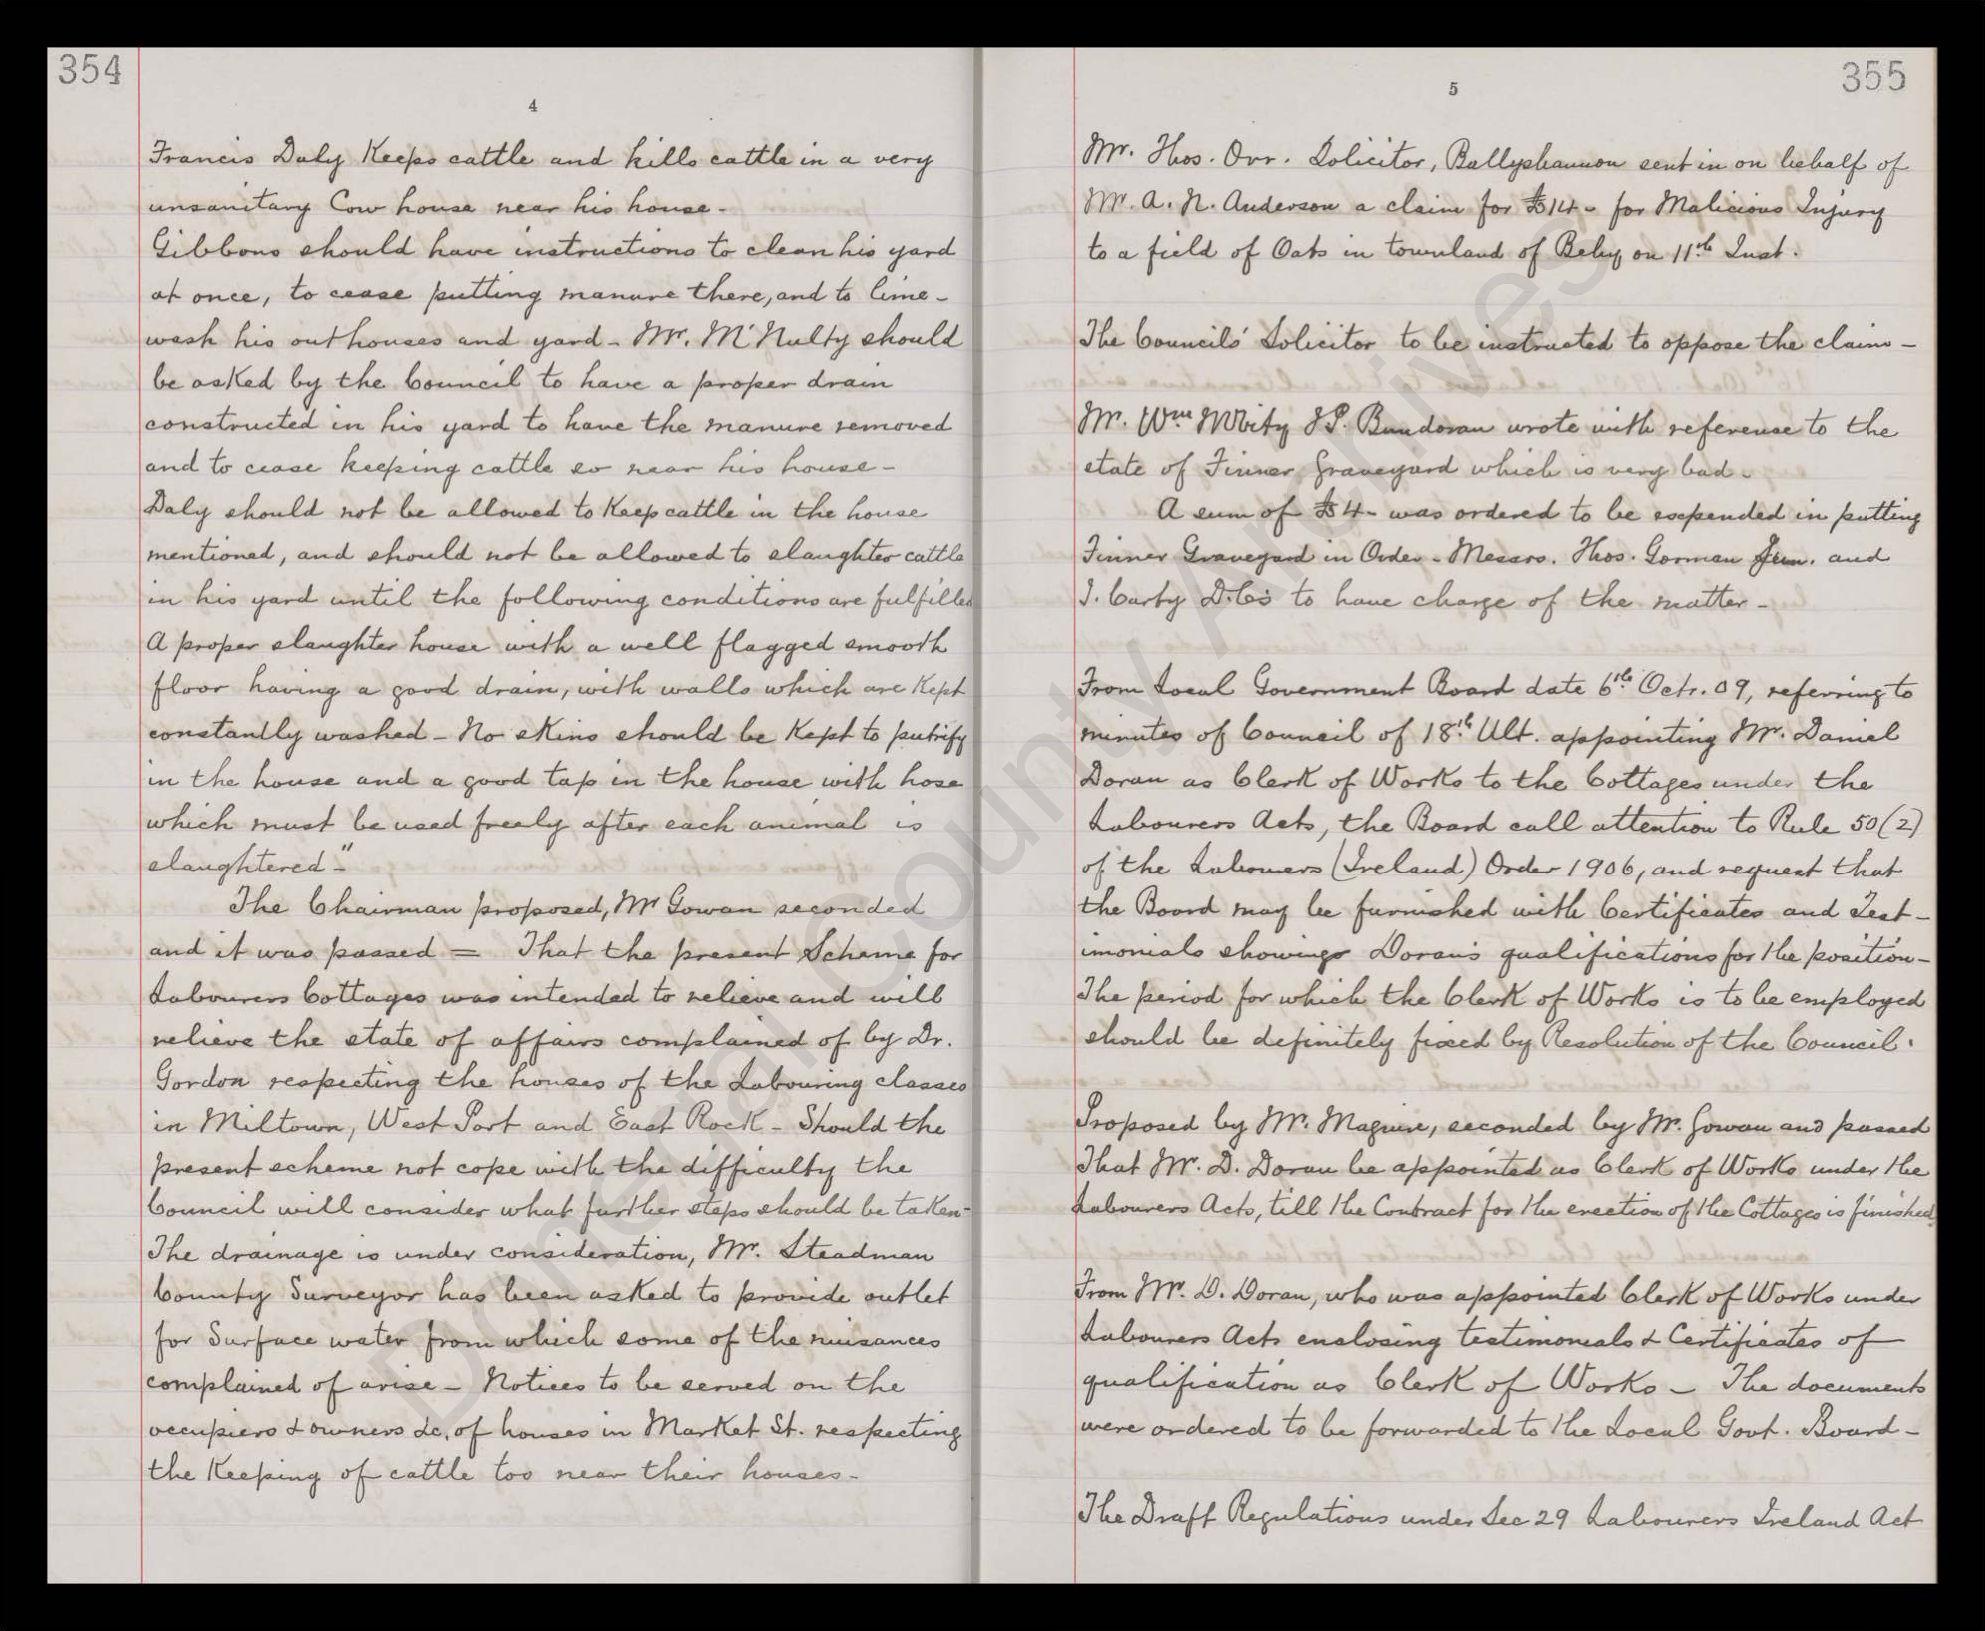 354
4
Francis Daly Keeps cattle and kills cattle in a very
unsanitary Cow house near his house -
Gibbons should have instructions to clean his yard
at once, to cease putting manure there, and to lime -
wash his outhouses and yard - Mr. McNulty should
be asked by the Council to have a proper drain
constructed in his yard to have the manure removed
and to cease keeping cattle so near his house -
Daly should not be allowed to Keep cattle in the house
mentioned, and should not be allowed to slaughter cattle
in his yard until the following conditions are fulfilled
A proper slaughter house with a well flagged smooth
floor having a good drain, with walls which are Kept
constantly washed - No skins should be Kept to putrify
in the house and a good tap in the house with hose
which must be used freely after each animal is
slaughtered" -
The Chairman proposed, Mr Gowan seconded
and it was passed = That the present Scheme for
Labourers Cottages was intended to relieve and will
relieve the state of affairs complained of by Dr.
Gordon respecting the houses of the Labouring classes
in Miltown, West Port and East Rock - Should the
present scheme not cope with the difficulty the
Council will consider what further steps should be taken -
The drainage is under consideration, Mr. Steadman
County Surveyor has been asked to provide outlet
for Surface water from which some of the nuisances
complained of arise - Notices to be served on the
occupiers & owners &c, of houses in Market St. respecting
the Keeping of cattle too near their houses -
355
5
Mr. Thos. Orr. Solicitor, Ballyshannon sent in on behalf of
Mr. A. N. Anderson a claim for £14 - for Malicious Injury
to a field of Oats in townland of Behy on 11th Inst.
The Councils' Solicitor to be instructed to oppose the claim -
Mr. Wm J.P. Bundoran wrote with reference to the
state of Finner Graveyard which is very bad -
A sum of £4 - was ordered to be expended in putting
Finner Graveyard in Order - Messrs. Thos. Gorman Jun. and
J. Carty D.Cs to have charge of the matter -
From Local Government Board date 6th Octr. 09, referring to
minutes of Council of 18th Ult. appointing Mr. Daniel
Doran as Clerk of Works to the Cottages under the
Labourers Acts, the Board call attention to Rule 50(2)
of the Labourers (Ireland) Order 1906, and request that
the Board may be furnished with Certificates and Test -
imonials showing Doran's qualifications for the position -
The period for which the Clerk of Works is to be employed
should be definitely fixed by Resolution of the Council.
Proposed by Mr. Maguire, seconded by Mr. Gowan and passed
That Mr. D. Doran be appointed as Clerk of Works under the
Labourers Acts, till the Contract for the erection of the Cottages is finished
From Mr. D. Doran, who was appointed Clerk of Works under
Labourers Acts enclosing testimonials & Certificates of
qualification as Clerk of Works - The documents
were ordered to be forwarded to the Local Govt. Board -
The Draft Regulations under Sec 29 Labourers Ireland Act
Donegal County Archives